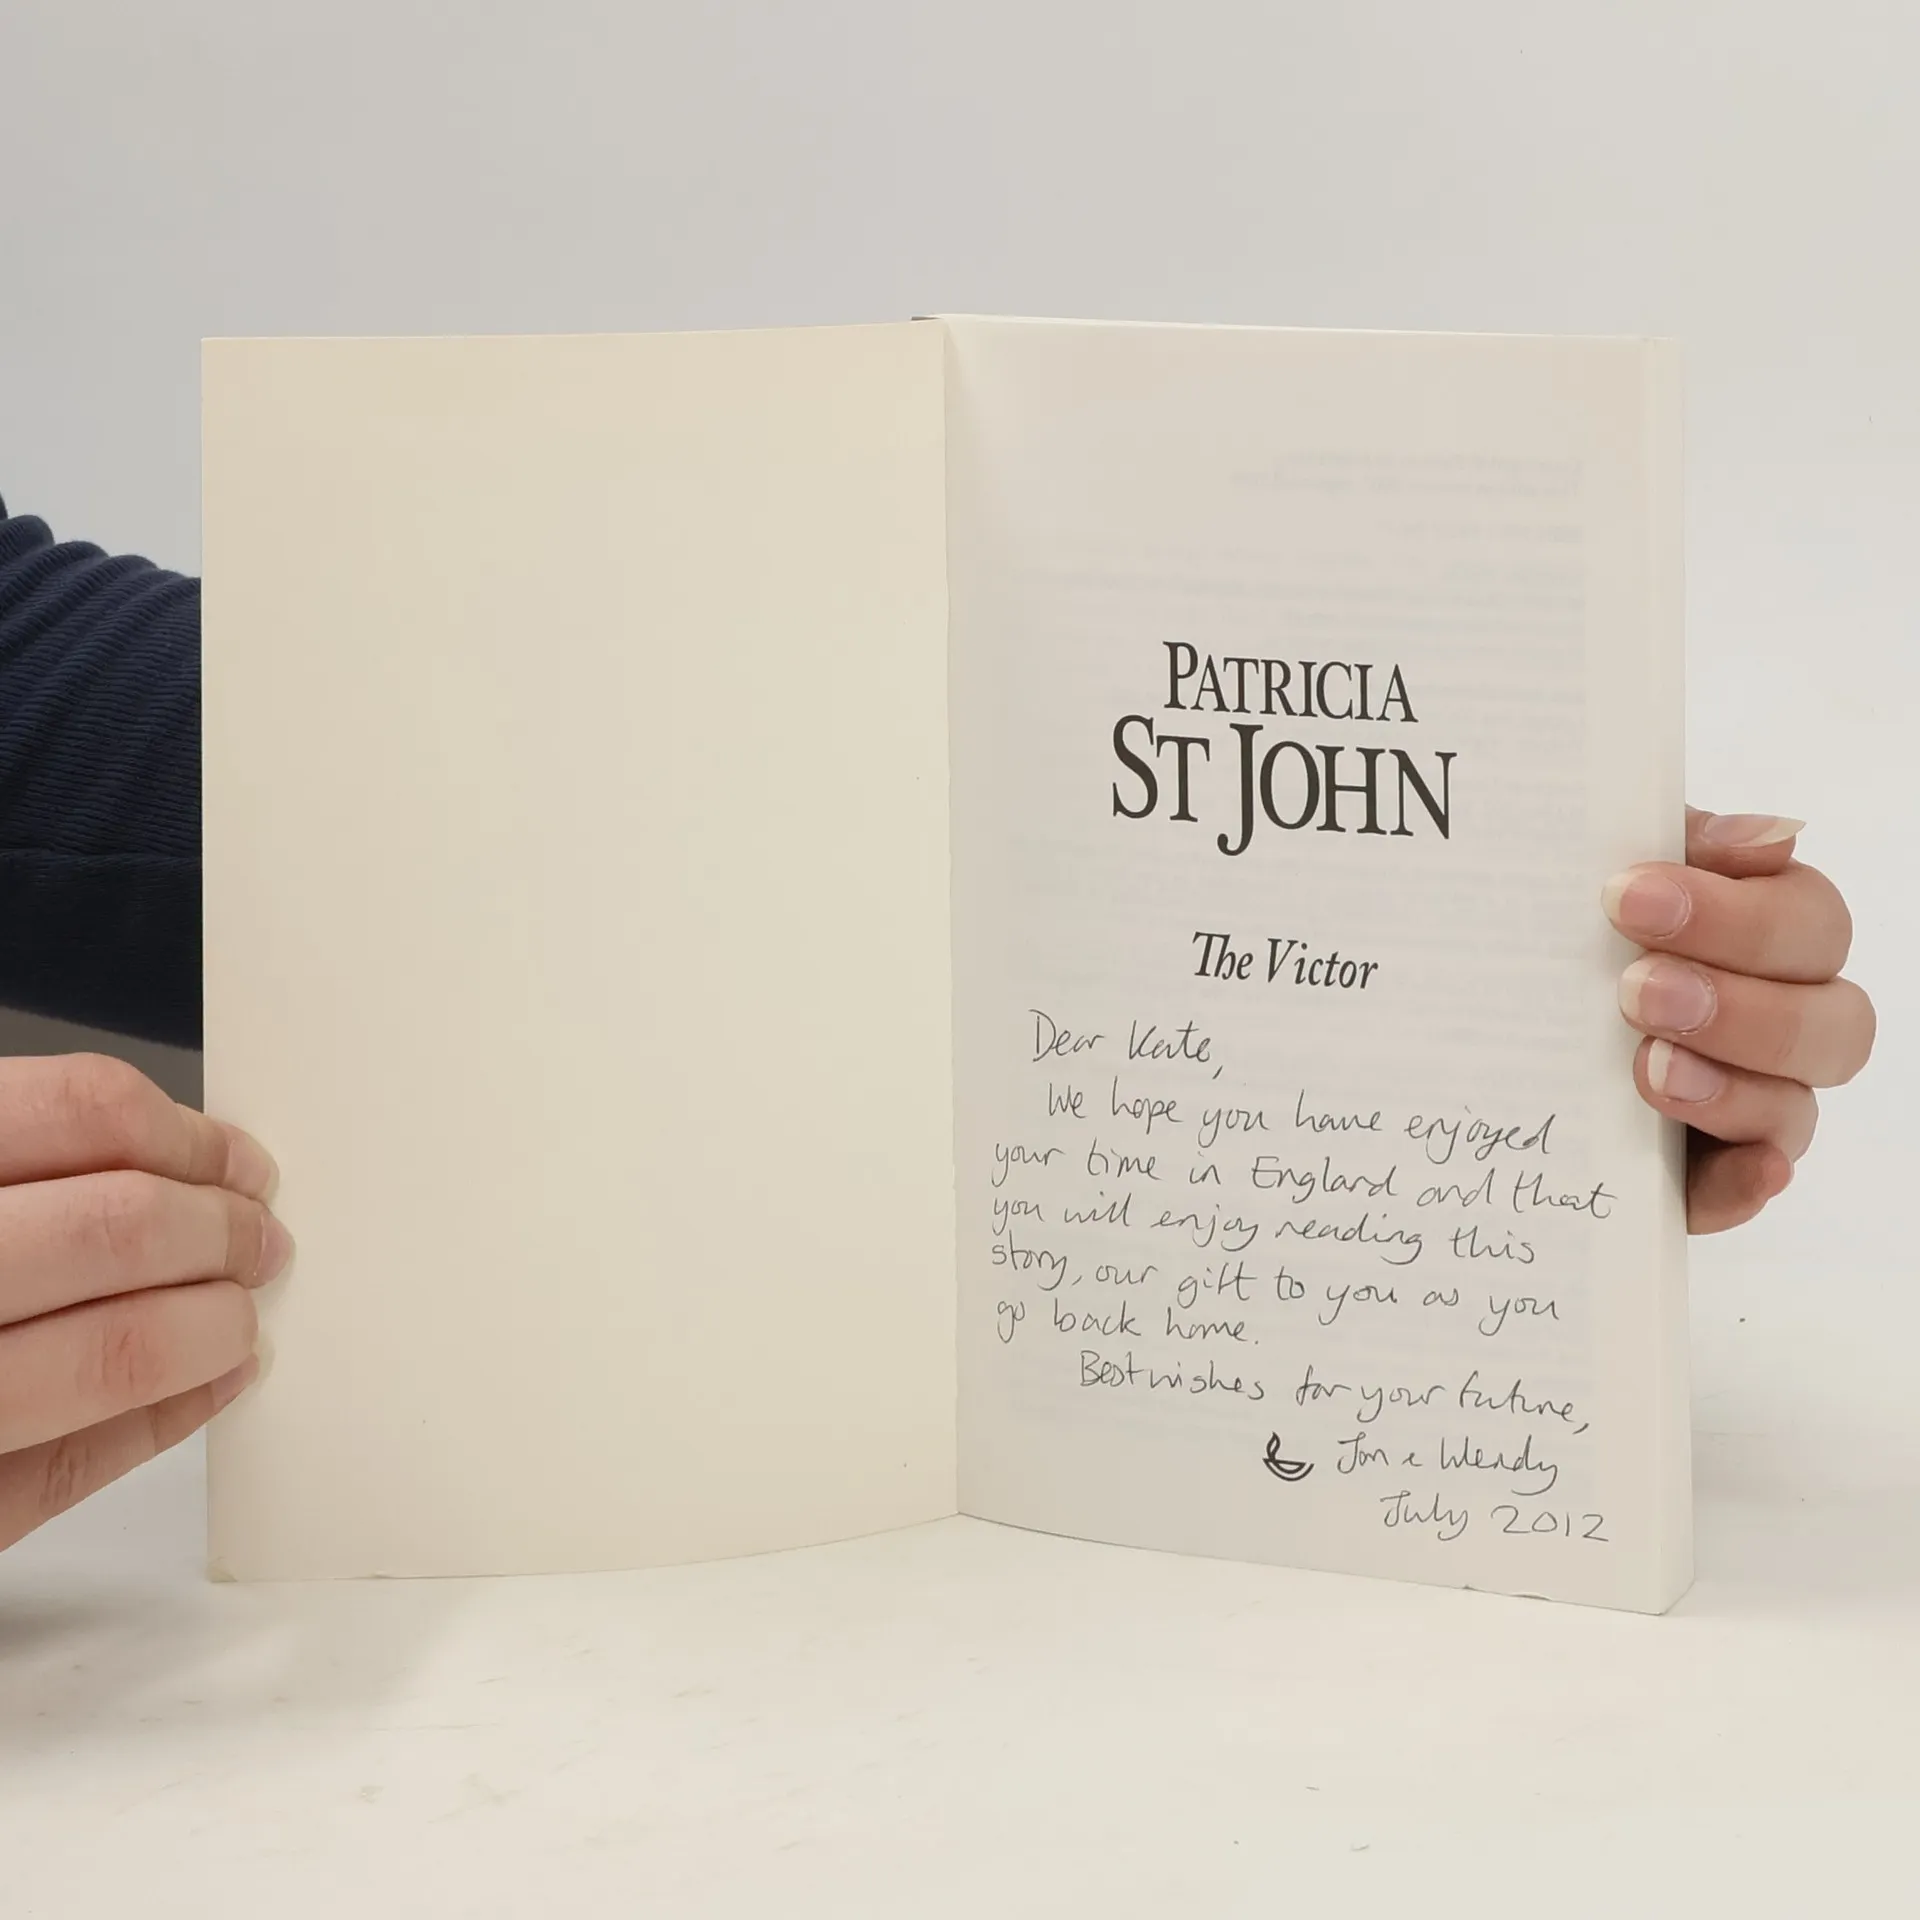 PATRICIA
ST JOHN
The Victor
Dear Kate,
We hope you have enjoyed
your time in England and that
you will enjoy reading this
story, our gift to you as you
go back home.
Best wishes for your future,
Jon & Wendy
July 2012